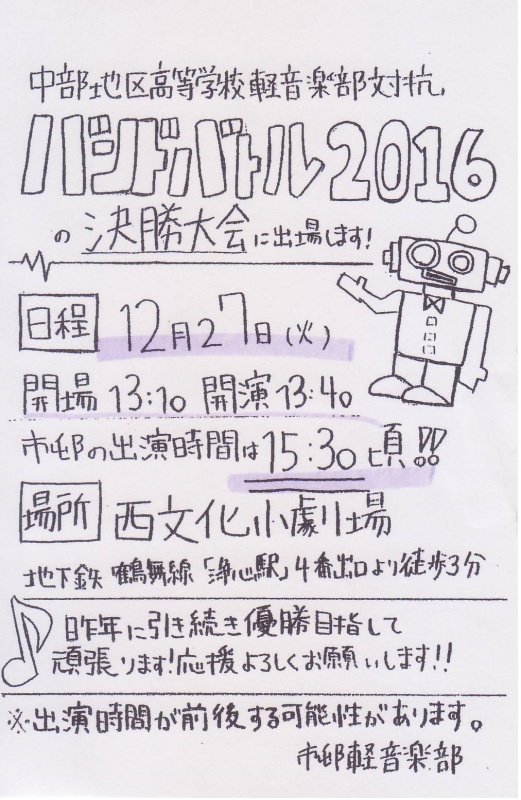 中部地区高等学校軽音楽部対抗
バンドバトル2016
の決勝大会に出場します!
日程 12月27日(火)
開場 13:10 開演 13:40
市邨の出演時間は15:30頃!!
場所 西文化小劇場
地下鉄 鶴舞線「浄心駅」4番出口より徒歩3分
昨年に引き続き優勝目指して
頑張ります!応援よろしくお願いします!!
※出演時間が前後する可能性があります。
市邨軽音楽部